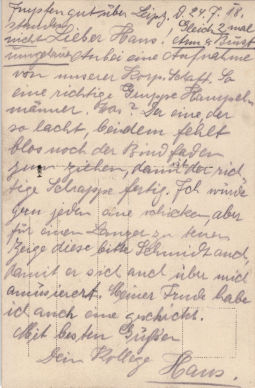 über Leipz. d. 24.7.18.
nicht Lieber Hans! Gleich 2 mal
Anbei eine Aufnahme
von unserer Korp.schaft. So
eine richtige Gruppe Hampel-
männer. Was? Der eine der
so lacht, bei dem fehlt
blos noch der Bindfaden
zum ziehen, damit ist der rich-
tige fertig. Ich würde
gern jeden eine schicken, aber
für einen Lanzer zu teuer.
Zeige diese bitte Schmidt auch,
damit er sich auch über mich
amüsierert. Meiner Trude habe
ich auch eine geschickt.
Mit besten Grüßen
Dein Kollege Hans.